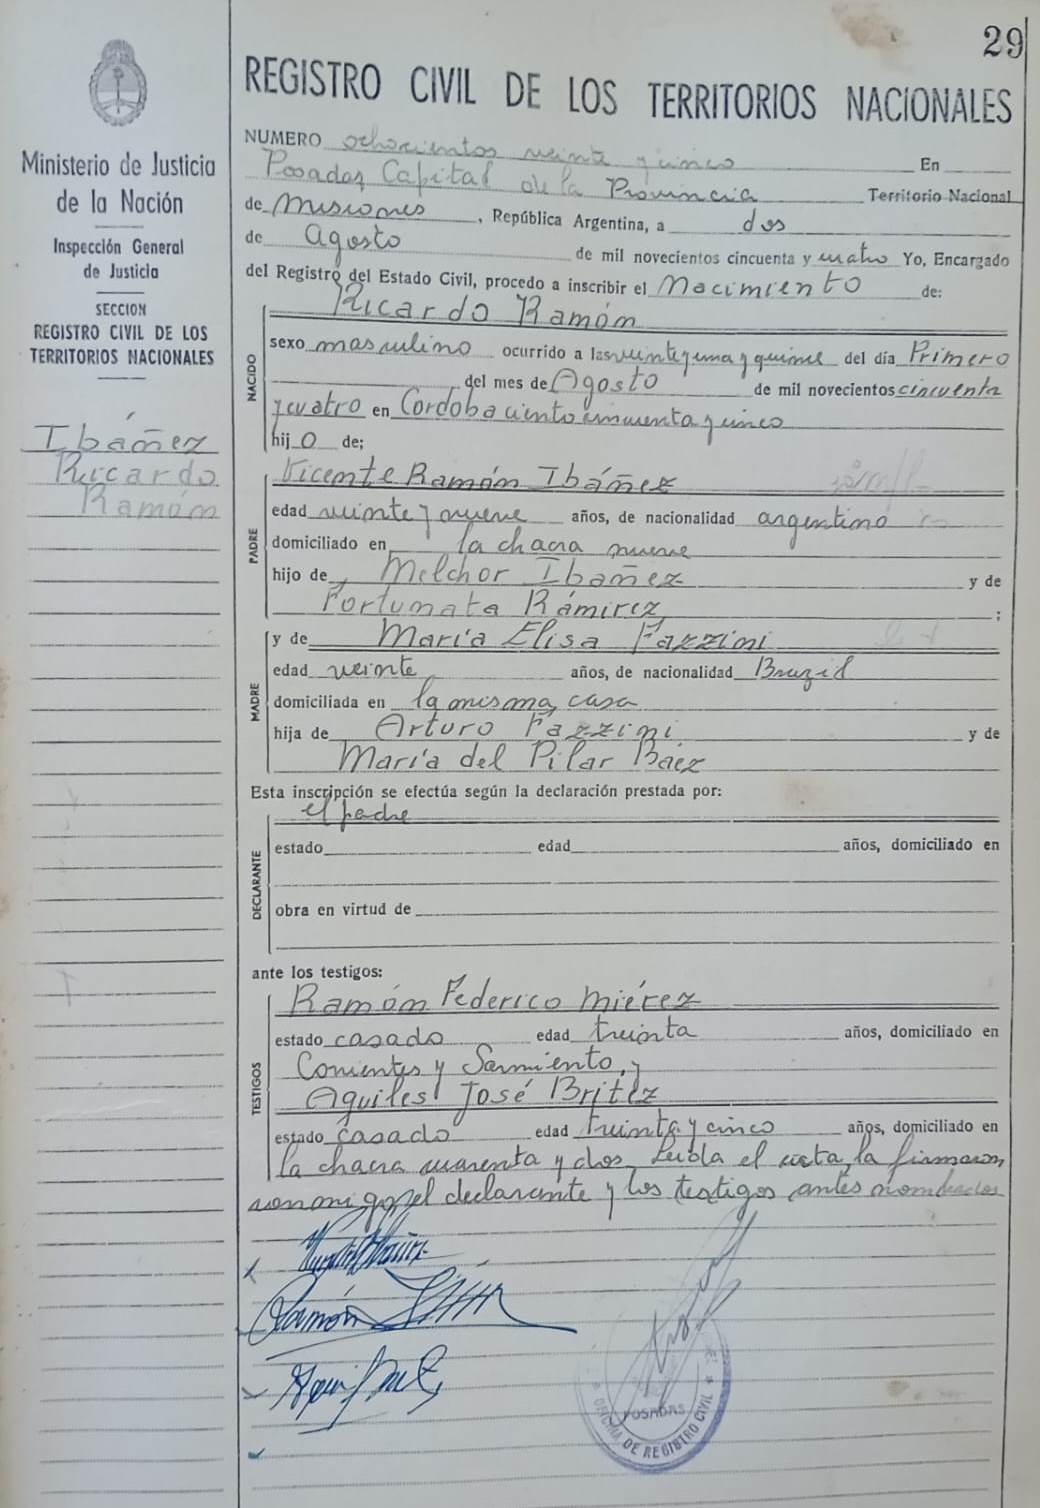 29
REGISTRO CIVIL DE LOS TERRITORIOS NACIONALES
Ministerio de Justicia
de la Nación
Inspección General
de Justicia
SECCION
REGISTRO CIVIL DE LOS
TERRITORIOS NACIONALES
Ibáñez
Ricardo
Ramón
NUMERO ochocientos veinte y cinco En
Posadas Capital de la Provincia Territorio Nacional
de Misiones, República Argentina, a dos
de Agosto de mil novecientos cincuenta y cuatro Yo, Encargado
del Registro del Estado Civil, procedo a inscribir el Nacimiento de:
NACIDO
Ricardo Ramón
sexo masculino ocurrido a las veinte y una y quince del día Primero
del mes de Agosto de mil novecientos cincuenta
y cuatro en Cordoba ciento cincuenta y cinco
hijo de;
PADRE
Vicente Ramón Ibáñez
edad veinte y nueve años, de nacionalidad argentino
domiciliado en la chacra nueve
hijo de Melchor Ibañez y de
Fortunata Rámirez ;
MADRE
y de María Elisa Fazzini
edad veinte años, de nacionalidad Brazil
domiciliada en la misma casa
hija de Arturo Fazzini y de
María del Pilar Báez
Esta inscripción se efectúa según la declaración prestada por:
DECLARANTE
el padre
estado edad años, domiciliado en
obra en virtud de
ante los testigos:
TESTIGOS
Ramón Federico Miérez
estado casado edad treinta años, domiciliado en
Corrientes y Sarmiento, y
Aquiles José Britez
estado casado edad treinta y cinco años, domiciliado en
la chacra cuarenta y dos Leida el acta, la firmaron
conmigo, el declarante y los testigos antes nombrados
Ramón
POSADAS
OFICINA DE REGISTRO CIVIL